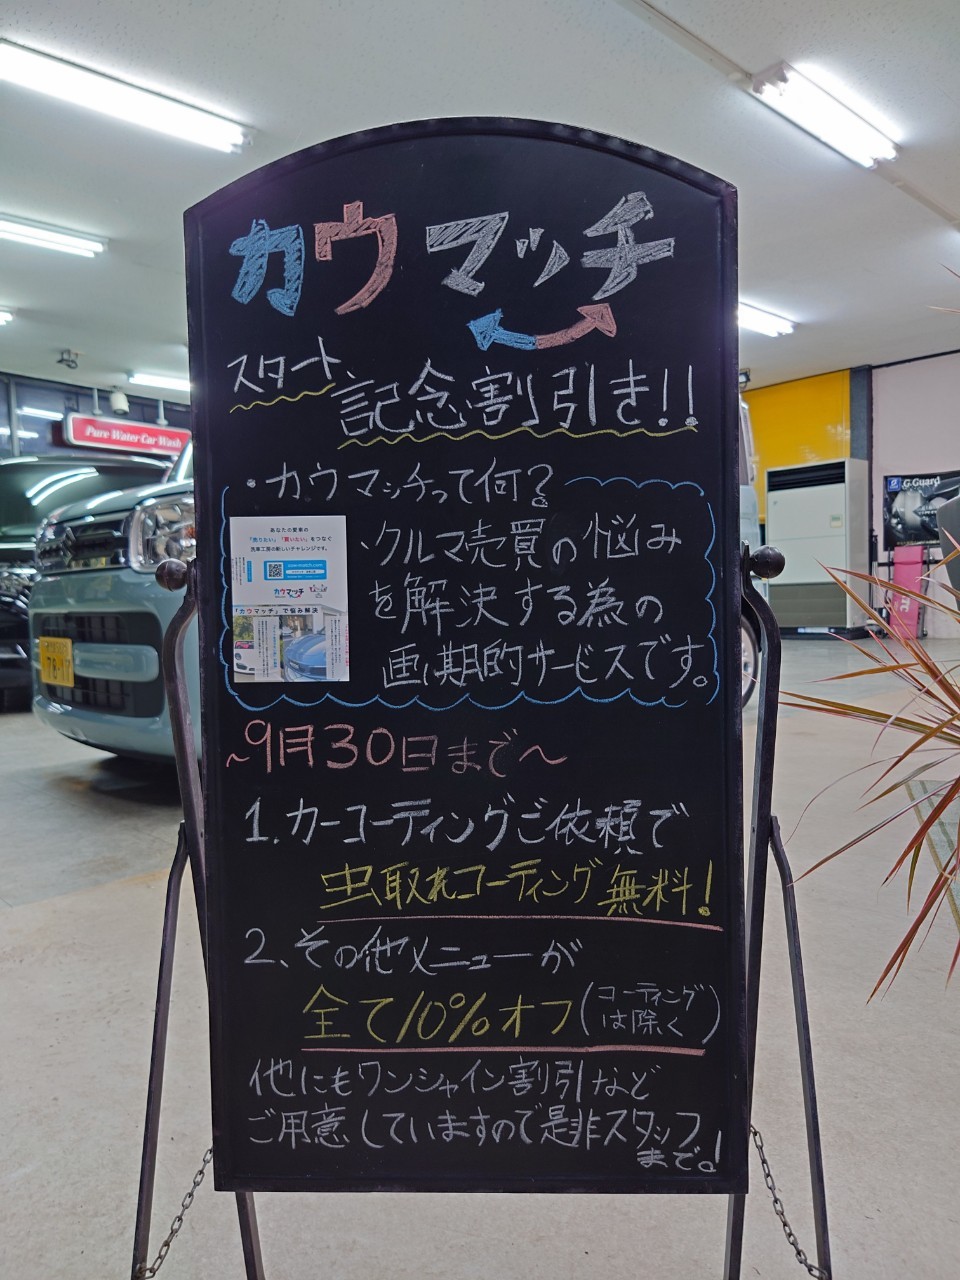 カウマッチ
スタート
記念割引き!!
・カウマッチって何?
・クルマ売買の悩み
を解決する為の
画期的サービスです。
あなたの愛車の
「売りたい」「買いたい」をつなぐ
洗車工房の新しいチャレンジです。
カウマッチ
「カウマッチ」で悩み解決
~9月30日まで~
1.カーコーティングご依頼で
虫取れコーティング無料!
2、その他メニューが
全て10%オフ(コーティング
は除く)
他にもワンシャイン割引など
ご用意していますので是非スタッフ
まで。!
Pure Water Car Wash
G.Guard